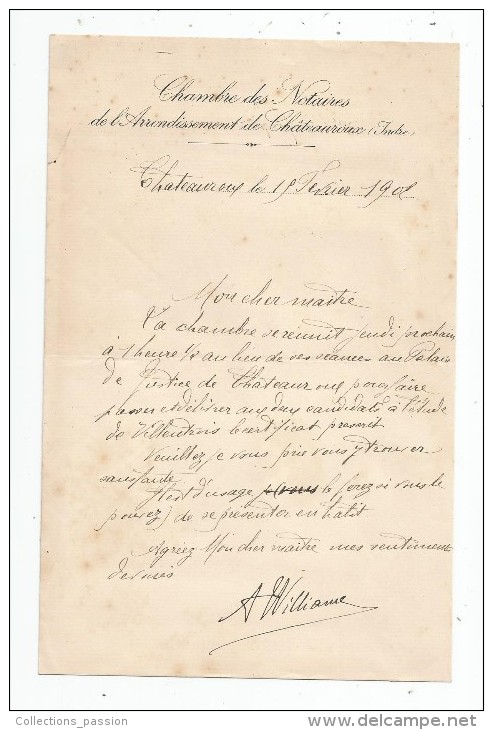 Chambre des Notaires
de l'Arrondissement de Châteauroux (Indre)
Chateauroux le 15 Fevrier 190
Mon cher maitre
La chambre se reunit jeudi prochain
à 1 heure ½ au lieu de ses séances au Palais
de Justice de Châteauroux pour faire
passer et délivrer aux deux candidats à l'étude
de Villentrois le certificat prescrit
Veuillez je vous prie vous y trouver
sans faute
Il est d'usage (vous le ferez si vous le
pouvez) de se présenter en habit
Agréez Mon cher maitre mes sentiments
devoues
A Williame
Collections_passion
delcampe.net